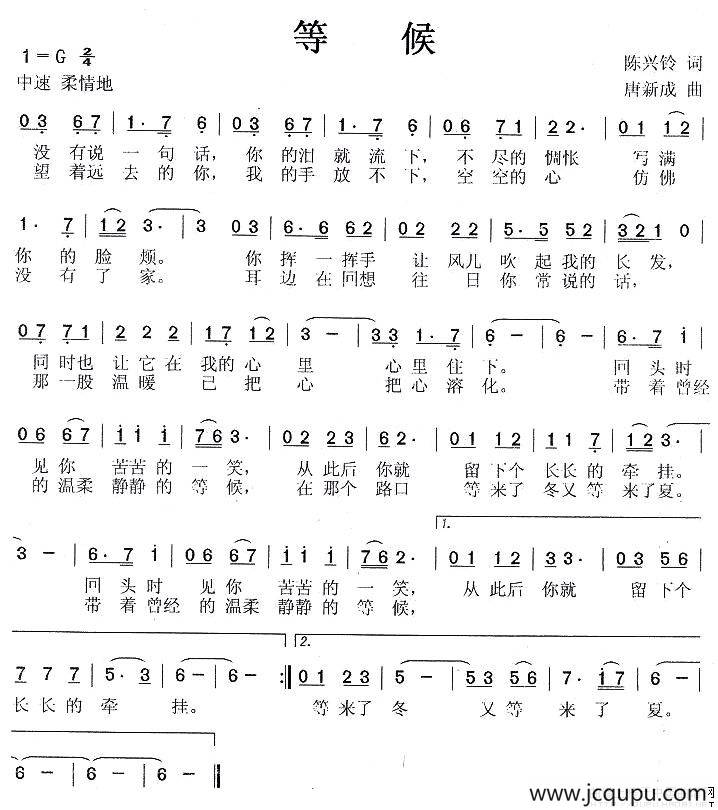 等 候
1=G 2/4
陈兴铃 词
中速 柔情地
唐新成 曲
03 67 | 1· 7 6 | 03 67 | 1· 7 6 | 06 71 | 22· | 01 12 |
没有说一句话, 你的泪就流下, 不尽的惆怅 写满
望着远去的你, 我的手放不下, 空空的心 仿佛
1· 7 | 12 3· | 3 03 | 6· 6 62 | 02 22 | 5· 5 52 | 321 0 |
你的脸颊。 你挥一挥手 让风儿吹起我的长发,
没有了家。 耳边在回想 往日你常说的话,
07 71 | 2 2 2 | 17 12 | 3 − | 33 1·7 | 6 − | 6 − | 6·7 i |
同时也让它在我的心里 心里住下。 回头时
那一股温暖 已把心 把心溶化。 带着曾经
06 67 | i i i | 763· | 02 23 | 62· | 01 12 | 11 7 | 12 3· |
见你 苦苦的一笑, 从此后你就 留下个长长的牵挂。
的温柔静静的等候, 在那个路口 等来了冬又等来了夏。
1.
3 − | 6·7 i | 06 67 | i i i | 762· | 01 12 | 33· | 03 56 |
回头时 见你 苦苦的一笑, 从此后你就 留下个
带着曾经的温柔静静的等候,
2.
7 77 | 5· 3 | 6 − | 6 − :‖ 01 23 | 5 − | 53 56 | 7· i7 | 6 − |
长长的牵挂。 等来了冬 又等来了夏。
6 − | 6 − | 6 − ‖
www.jcqupu.com